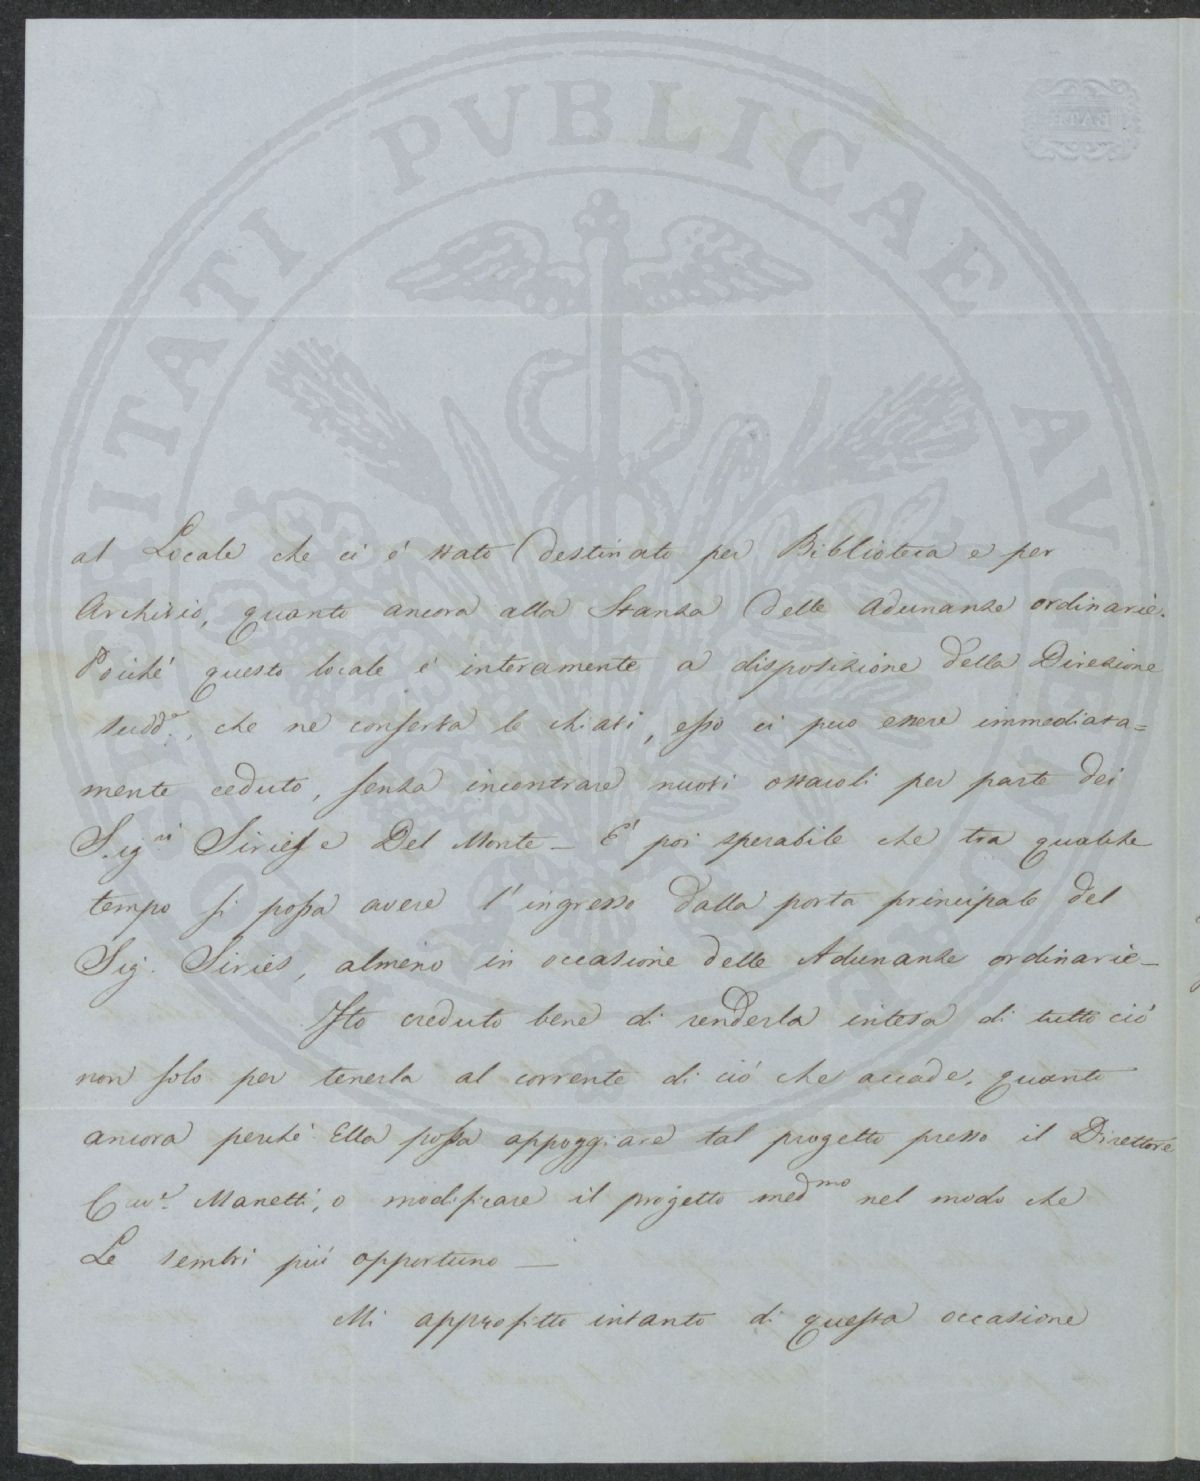 al Locale che ci é stato destinato per Biblioteca e per
Archivio, quanto ancora alla Stanza delle Adunanze ordinarie.
Poiché questo locale é interamente a disposizione della Direzione
sudd.ª, che ne conserva le chiavi, esso ci puo essere immediata=
mente ceduto, senza incontrare nuovi ostacoli per parte dei
Sig.ri Siries e Del Monte _ É poi sperabile che tra qualche
tempo si possa avere l'ingresso dalla porta principale del
Sig. Siries, almeno in occasione delle Adunanze ordinarie _
Ho creduto bene di renderla intesa di tutto ció
non solo per tenerla al corrente di ció che accade, quanto
ancora perché Ella possa appoggiare tal progetto presso il Direttore
Cav.r Manetti, o modificare il progetto med.mo nel modo che
Le sembri piú opportuno _
Mi approfitto intanto di questa occasione